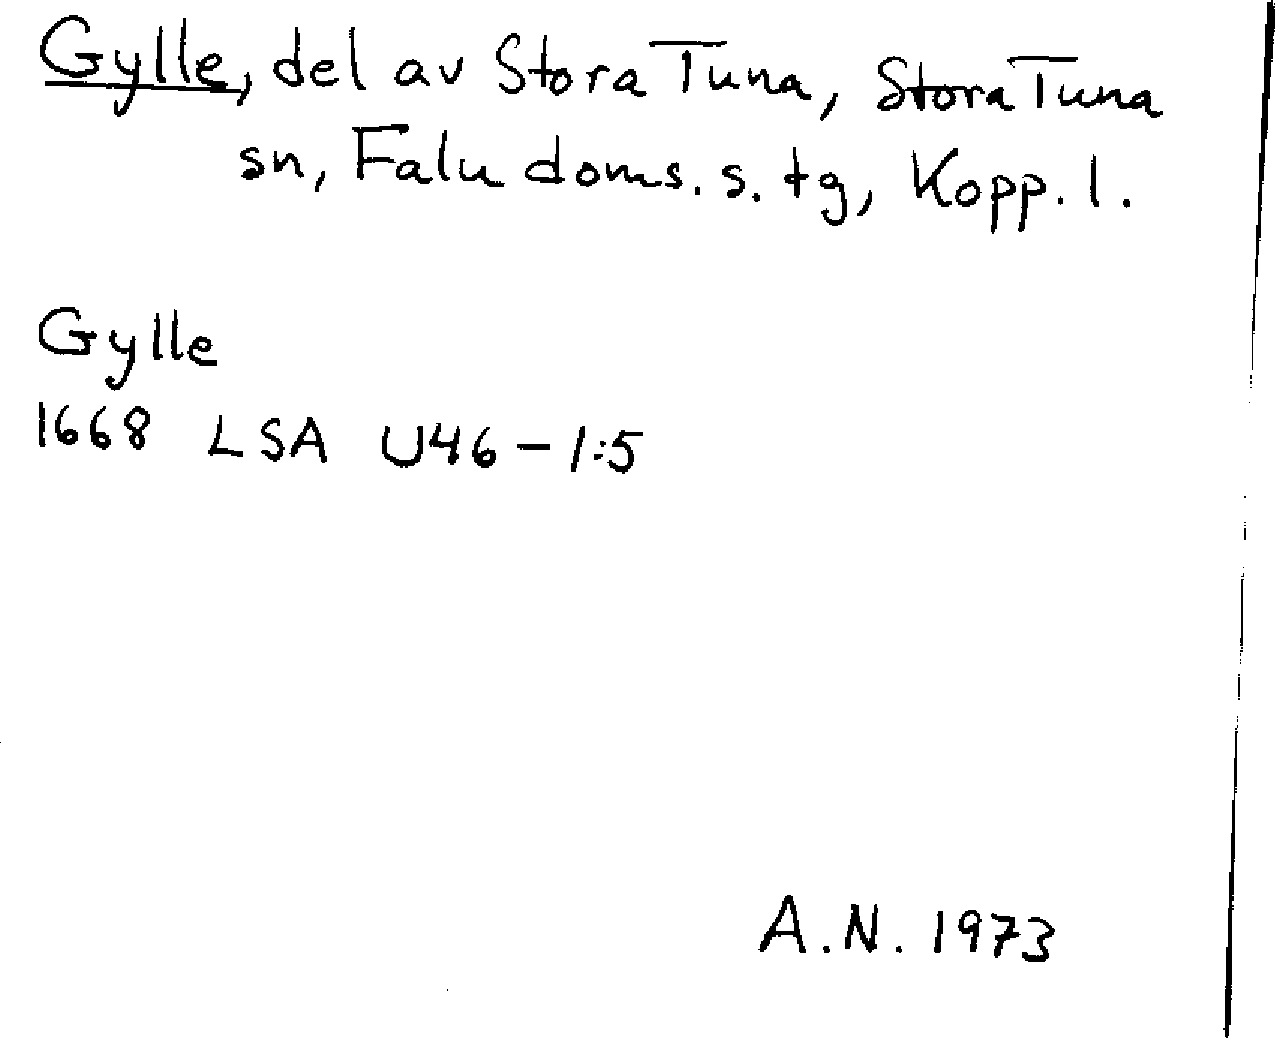 Gylle, del av Stora Tuna, Stora Tuna
sn, Falu doms. s. tg, Kopp. l.
Gylle
1668 LSA U46-1:5
A.N. 1973